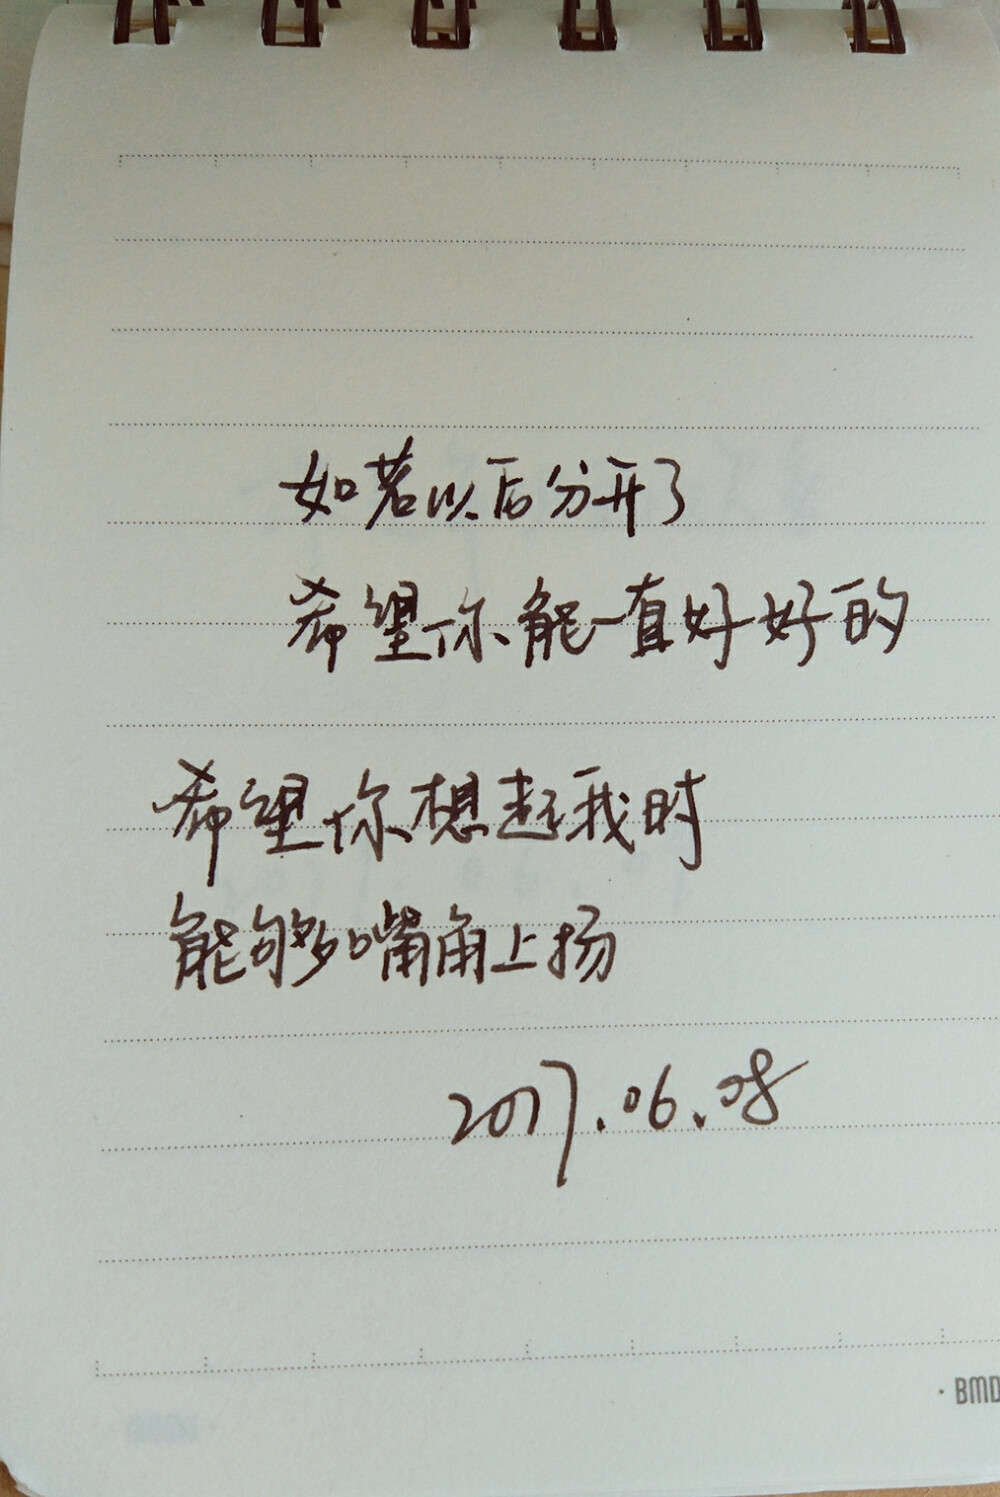 如若以后分开了
希望你能一直好好的
希望你想起我时
能够嘴角上扬
2017.06.08
· BMD